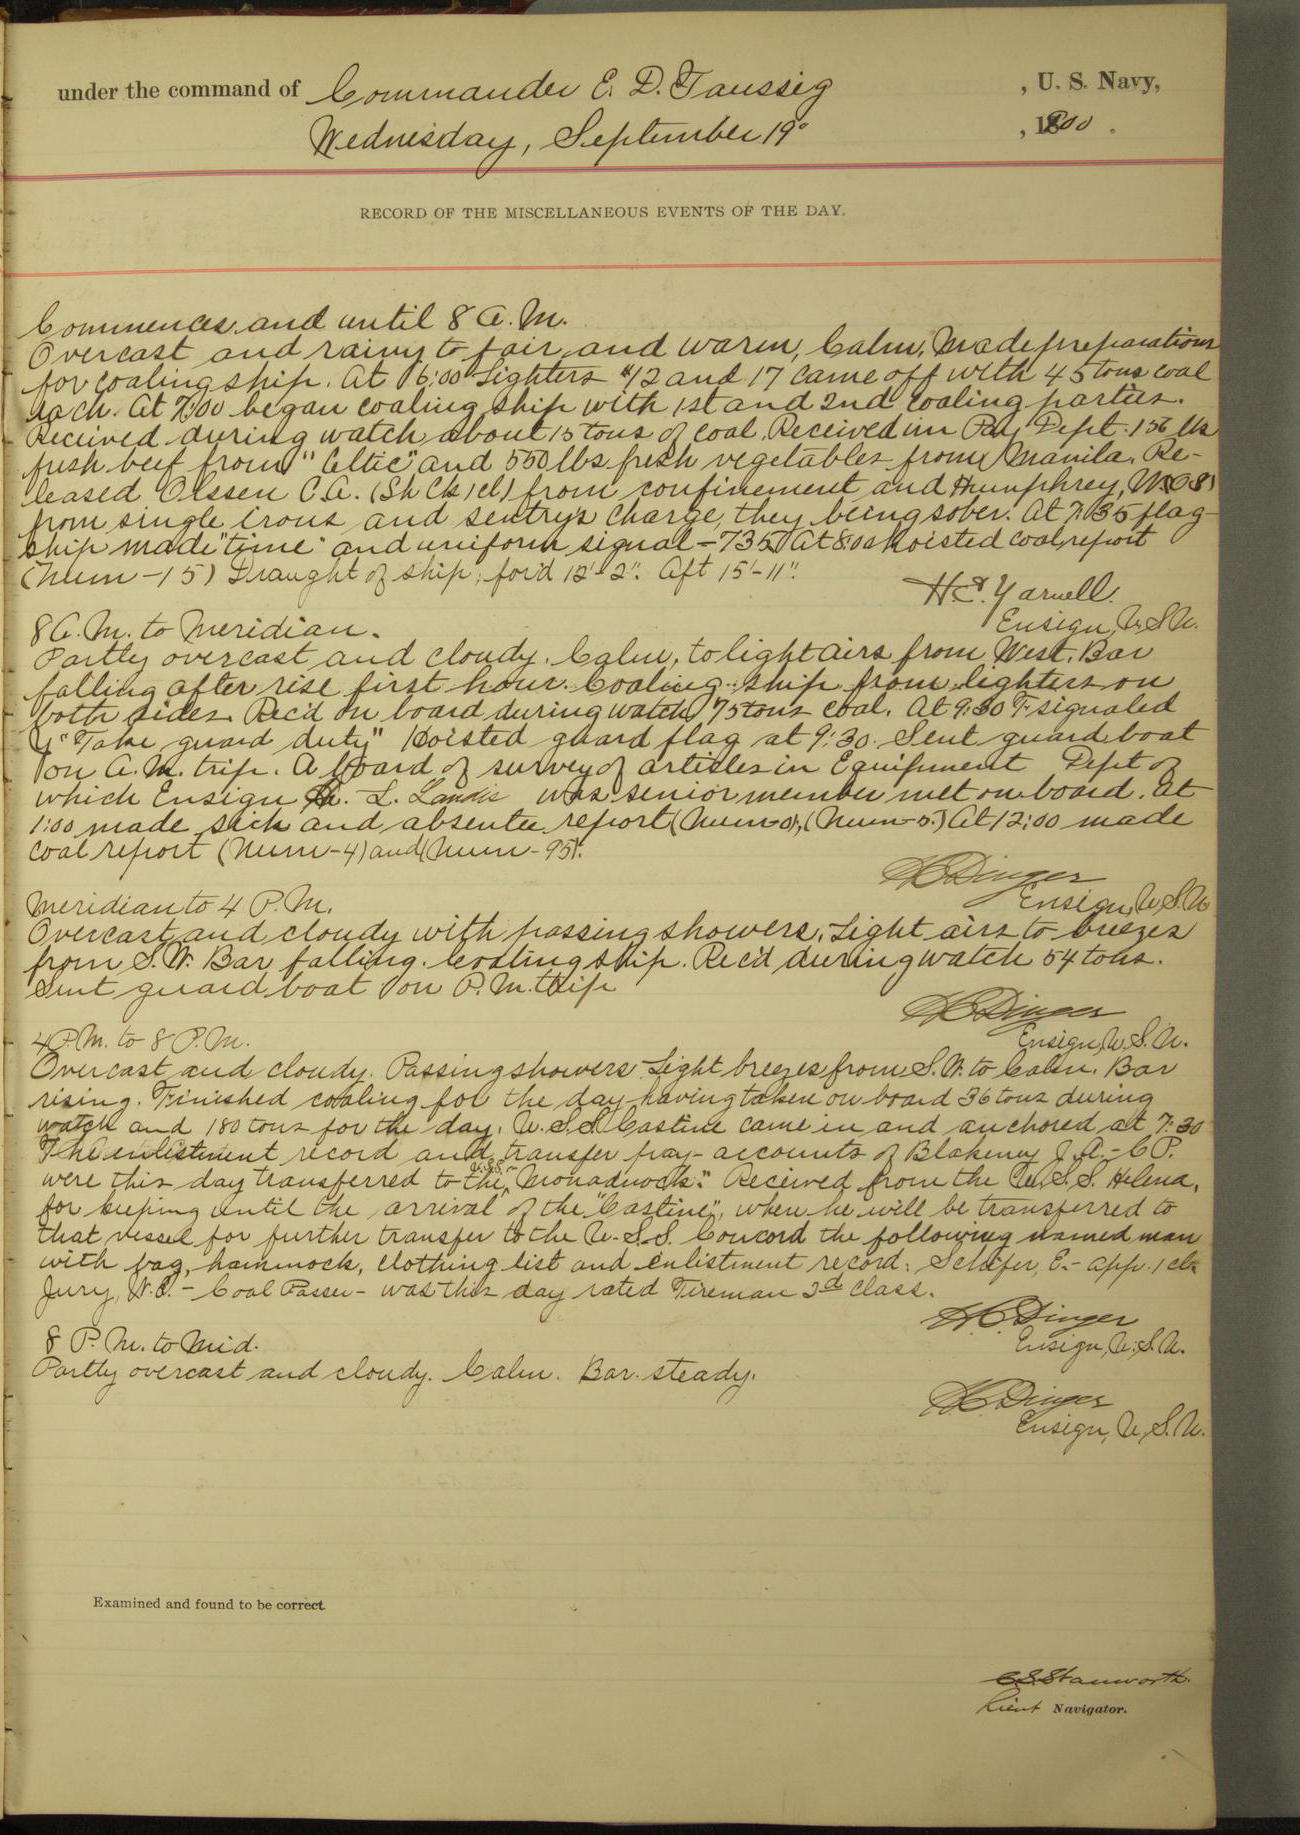 under the command of Commander E. D. Taussig , U. S. Navy,
Wednesday, September 19" , 1900 .
RECORD OF THE MISCELLANEOUS EVENTS OF THE DAY.
Commences and until 8 A. M.
Overcast and rainy to fair and warm, Calm, Made preparations
for coaling ship. At 6:00 Lighters #12 and 17 came off with 45 tons coal
each. At 7:00 began coaling ship with 1st and 2nd coaling parties.
Received during watch about 15 tons of coal. Received in Pay Dept. 156 lbs
fresh beef from "Celtic" and 550 lbs fresh vegetables from Manila. Re-
leased Olssen C.A. (Sh Ck 1cl) from confinement and Humphrey, W.
from single irons and sentry's charge, they being sober. At 7:35 flag-
ship made "time" and uniform signal - 735 At 8:00 hoisted coal report
(Num - 15) Draught of ship; for'd 12'-2". Aft 15'-11".
H. E. Yarnell.
Ensign, U.S.N.
8 A. M. to Meridian.
Partly overcast and cloudy. Calm, to light airs from West. Bar
falling after rise first hour. Coaling ship from lighters on
both sides. Rec'd on board during watch 75 tons coal. At 9:30 F signaled
Y "Take guard duty" Hoisted guard flag at 9:30. Sent guard boat
on A. M. trip. A board of survey of articles in Equipment Dept of
which Ensign L. Landis was senior member met on board. At
1:00 made sick and absentee report (Num-0), (Num-0.) At 12:00 made
coal report (Num-4) and (Num-95).
H C Dinger
Ensign, U.S.N
Meridian to 4 P. M.
Overcast and cloudy with passing showers. Light airs to breezes
from S. W. Bar falling. Coaling ship. Rec'd during watch 54 tons.
Sent guard boat on P. M. trip
H C Dinger
Ensign, U. S. N.
4 P. M. to 8 P. M.
Overcast and cloudy. Passing showers. Light breezes from S. W. to Calm. Bar
rising. Finished coaling for the day having taken on board 36 tons during
watch and 180 tons for the day. U. S. S. Castine came in and anchored at 7:30
The enlistment record and transfer pay-accounts of Blakeney J. A. - C. P.
were this day transferred to the U.S.S. "Monadnock." Received from the U. S. S. Helena,
for keeping until the arrival of the "Castine", when he will be transferred to
that vessel for further transfer to the U. S. S. Concord the following named man
with bag, hammock, clothing list and enlistment record: Schifer, E. - app. 1 cls
Jury, - Coal Passer - was this day rated Fireman 2d class.
H C Dinger
Ensign, U. S. N.
8 P. M. to Mid.
Partly overcast and cloudy. Calm. Bar. steady.
H C Dinger
Ensign, U. S. N.
Examined and found to be correct.
C S Stanworth.
Lieut Navigator.